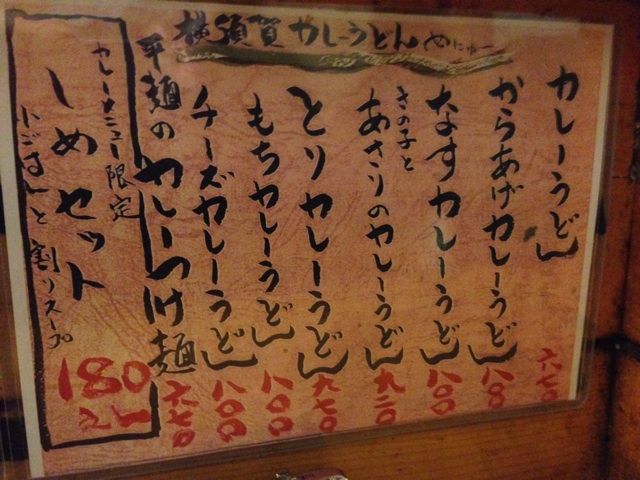 横須賀カレーうどんめにゅー
カレーうどん 六七〇
からあげカレーうどん 八八〇
なすカレーうどん 八〇〇
きの子と
あさりのカレーうどん 九二〇
とりカレーうどん 九七〇
もちカレーうどん 八〇〇
チーズカレーうどん 八〇〇
平麺のカレーつけ麺 六七〇
カレーメニュー限定
しめセット
小ごはんと割りスープ
180